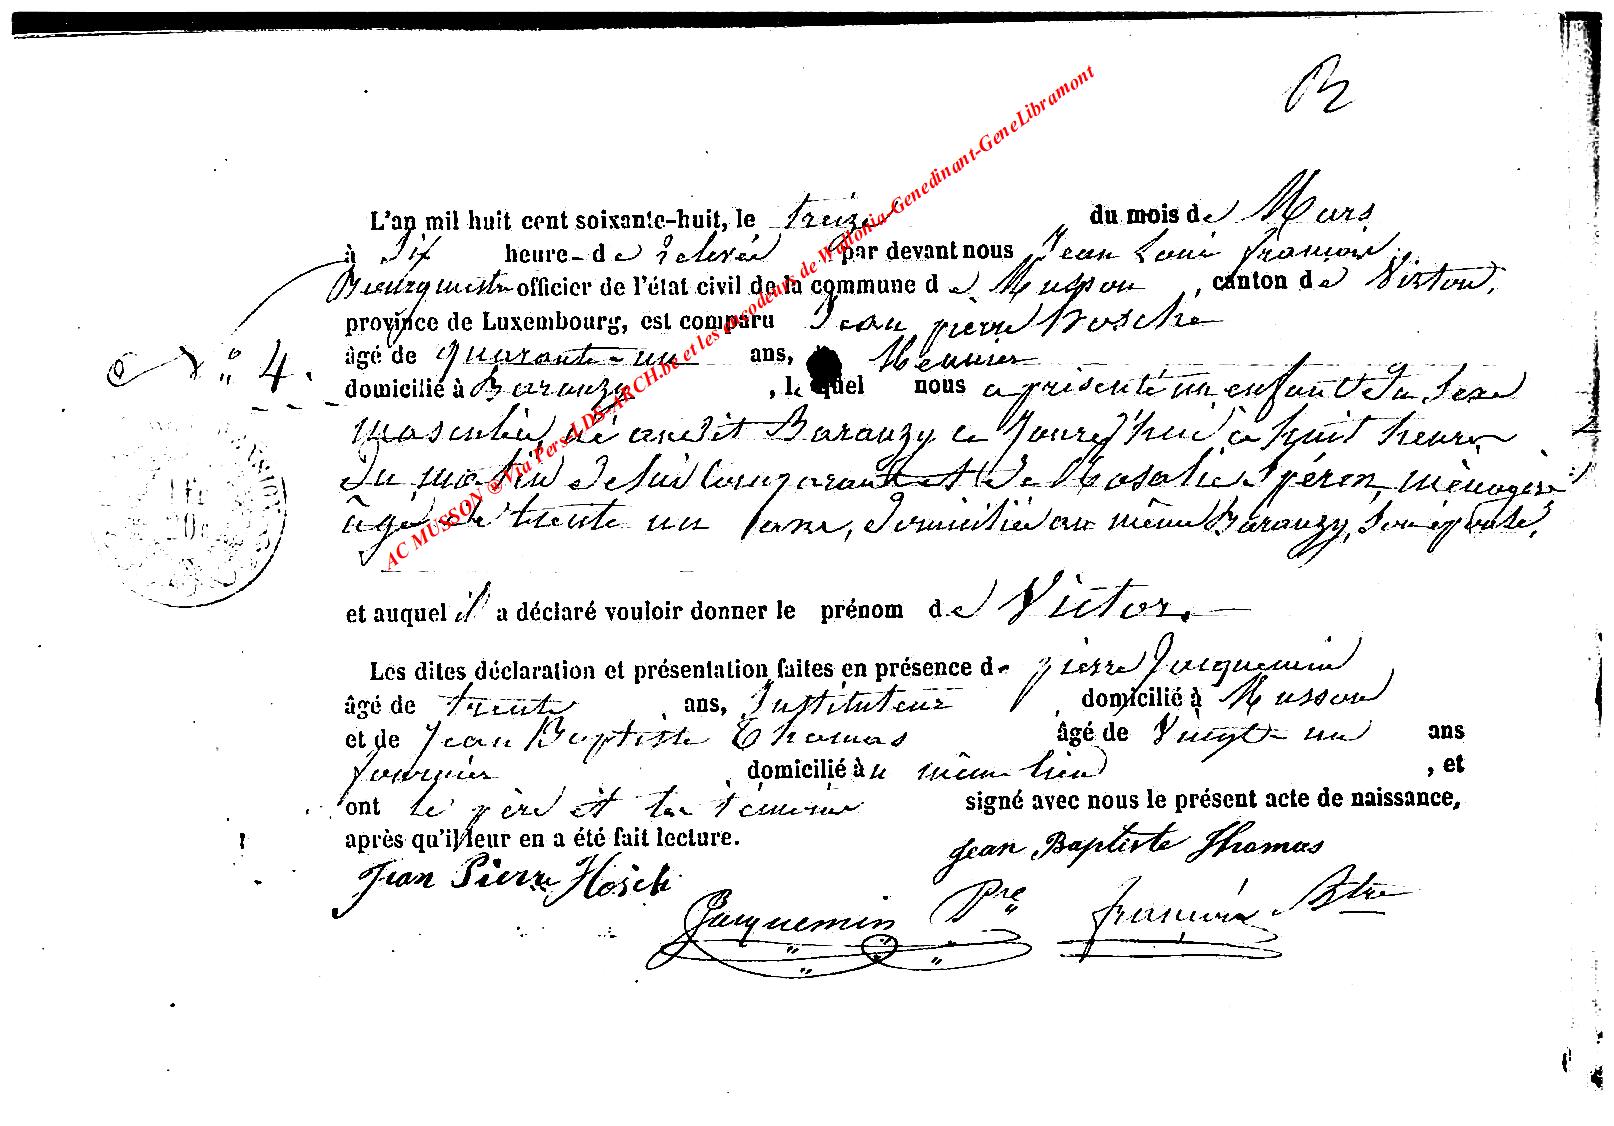 B
L'an mil huit cent soixante-huit, le treize du mois de Mars
à Six heure- de relevée par devant nous Jean Louis françois
Bourgmestre officier de l'état civil de la commune de Musson, canton de Virton,
province de Luxembourg, est comparu Jean pierre Hosche
âgé de quarante-un ans, Meunier
N° 4.
domicilié à Baranzy, lequel nous a présenté un enfant du Sexe
masculin, né audit Baranzy ce Jourd'hui à huit heures
du matin de lui Comparant et de Rosalie Spéron, ménagère
âgée de trente un ans, domiciliée au même Baranzy, Son épouse,
et auquel il a déclaré vouloir donner le prénom de Victor.
Les dites déclaration et présentation faites en présence de pierre Jacquemin
âgé de trente ans, Instituteur, domicilié à Musson
et de Jean Baptiste Thomas âgé de Vingt-un ans
domicilié au même lieu, et
ont le père et les témoins signé avec nous le présent acte de naissance,
après qu'il leur en a été fait lecture.
Jean Baptiste Thomas
Jean Pierre Hosch
Jacquemin Pre françois Btre
AC MUSSON @ Via Pers-LDS-ARCH.be et les encodeurs de Wallonia-Genedinant-GeneLibramont